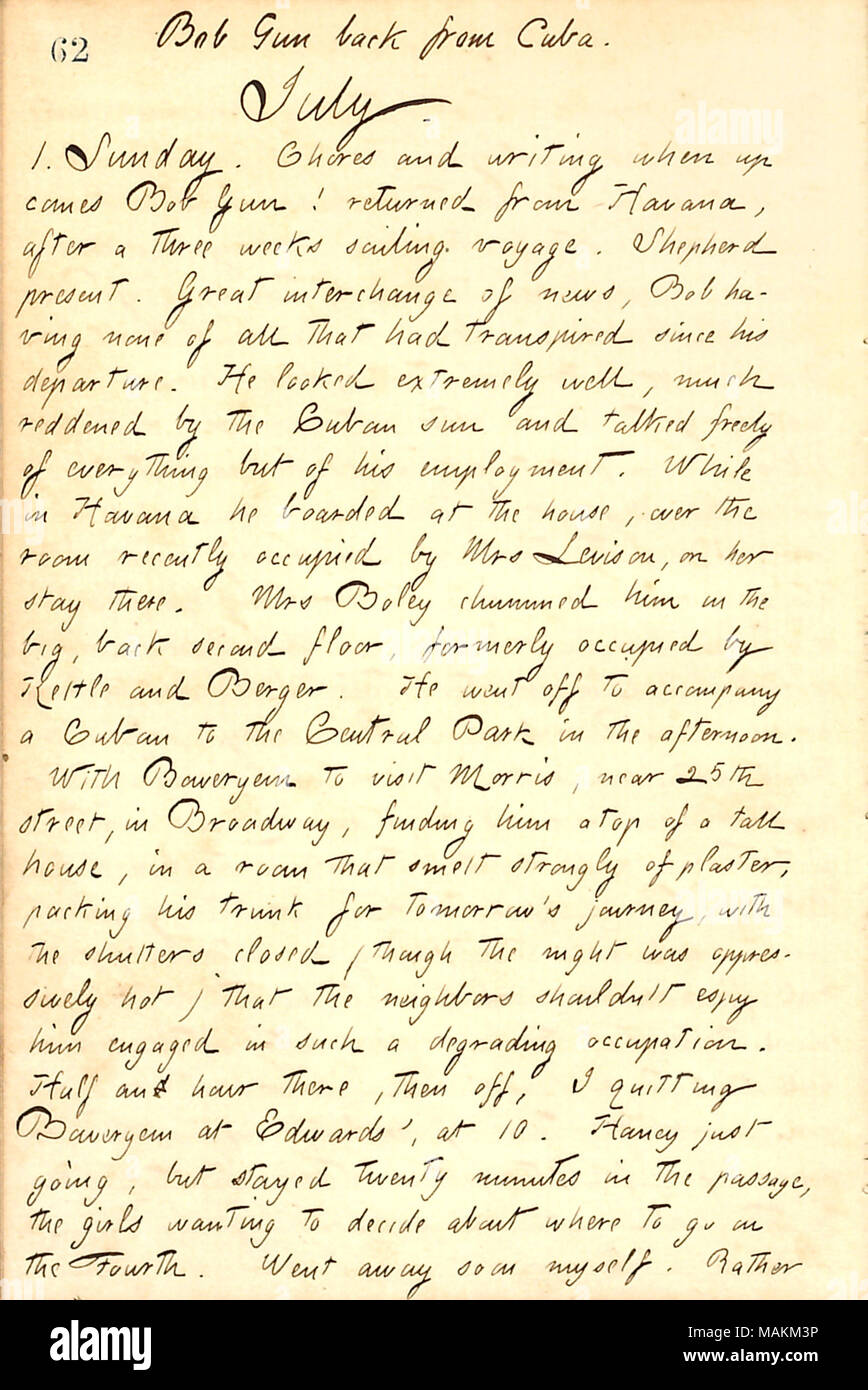 62
Bob Gun back from Cuba.
July.
1. Sunday. Chores and writing when up
comes Bob Gun! returned from Havana,
after a three weeks sailing voyage. Shepherd
present. Great interchange of news, Bob ha-
ving none of all that had transpired since his
departure. He looked extremely well, much
reddened by the Cuban sun and talked freely
of everything but of his employment. While
in Havana he boarded at the house, over the
room recently occupied by Mrs Levison, on her
stay there. Mrs Boley chummed him in the
big, back second floor, formerly occupied by
Kettle and Berger. He went off to accompany
a Cuban to the Central Park in the afternoon.
With Boweryem to visit Morris, near 25th
street, in Broadway, finding him atop of a tall
house, in a room that smelt strongly of plaster,
packing his trunk for tomorrow's journey, with
the shutters closed (though the night was oppres-
sively hot) that the neighbors shouldn't espy
him engaged in such a degrading occupation.
Half an hour there, then off, I quitting
Boweryem at Edwards', at 10. Haney just
going, but stayed twenty minutes in the passage,
the girls wanting to decide about where to go on
the Fourth. Went away soon myself. Rather
alamy
Image ID: MAKM3P
www.alamy.com